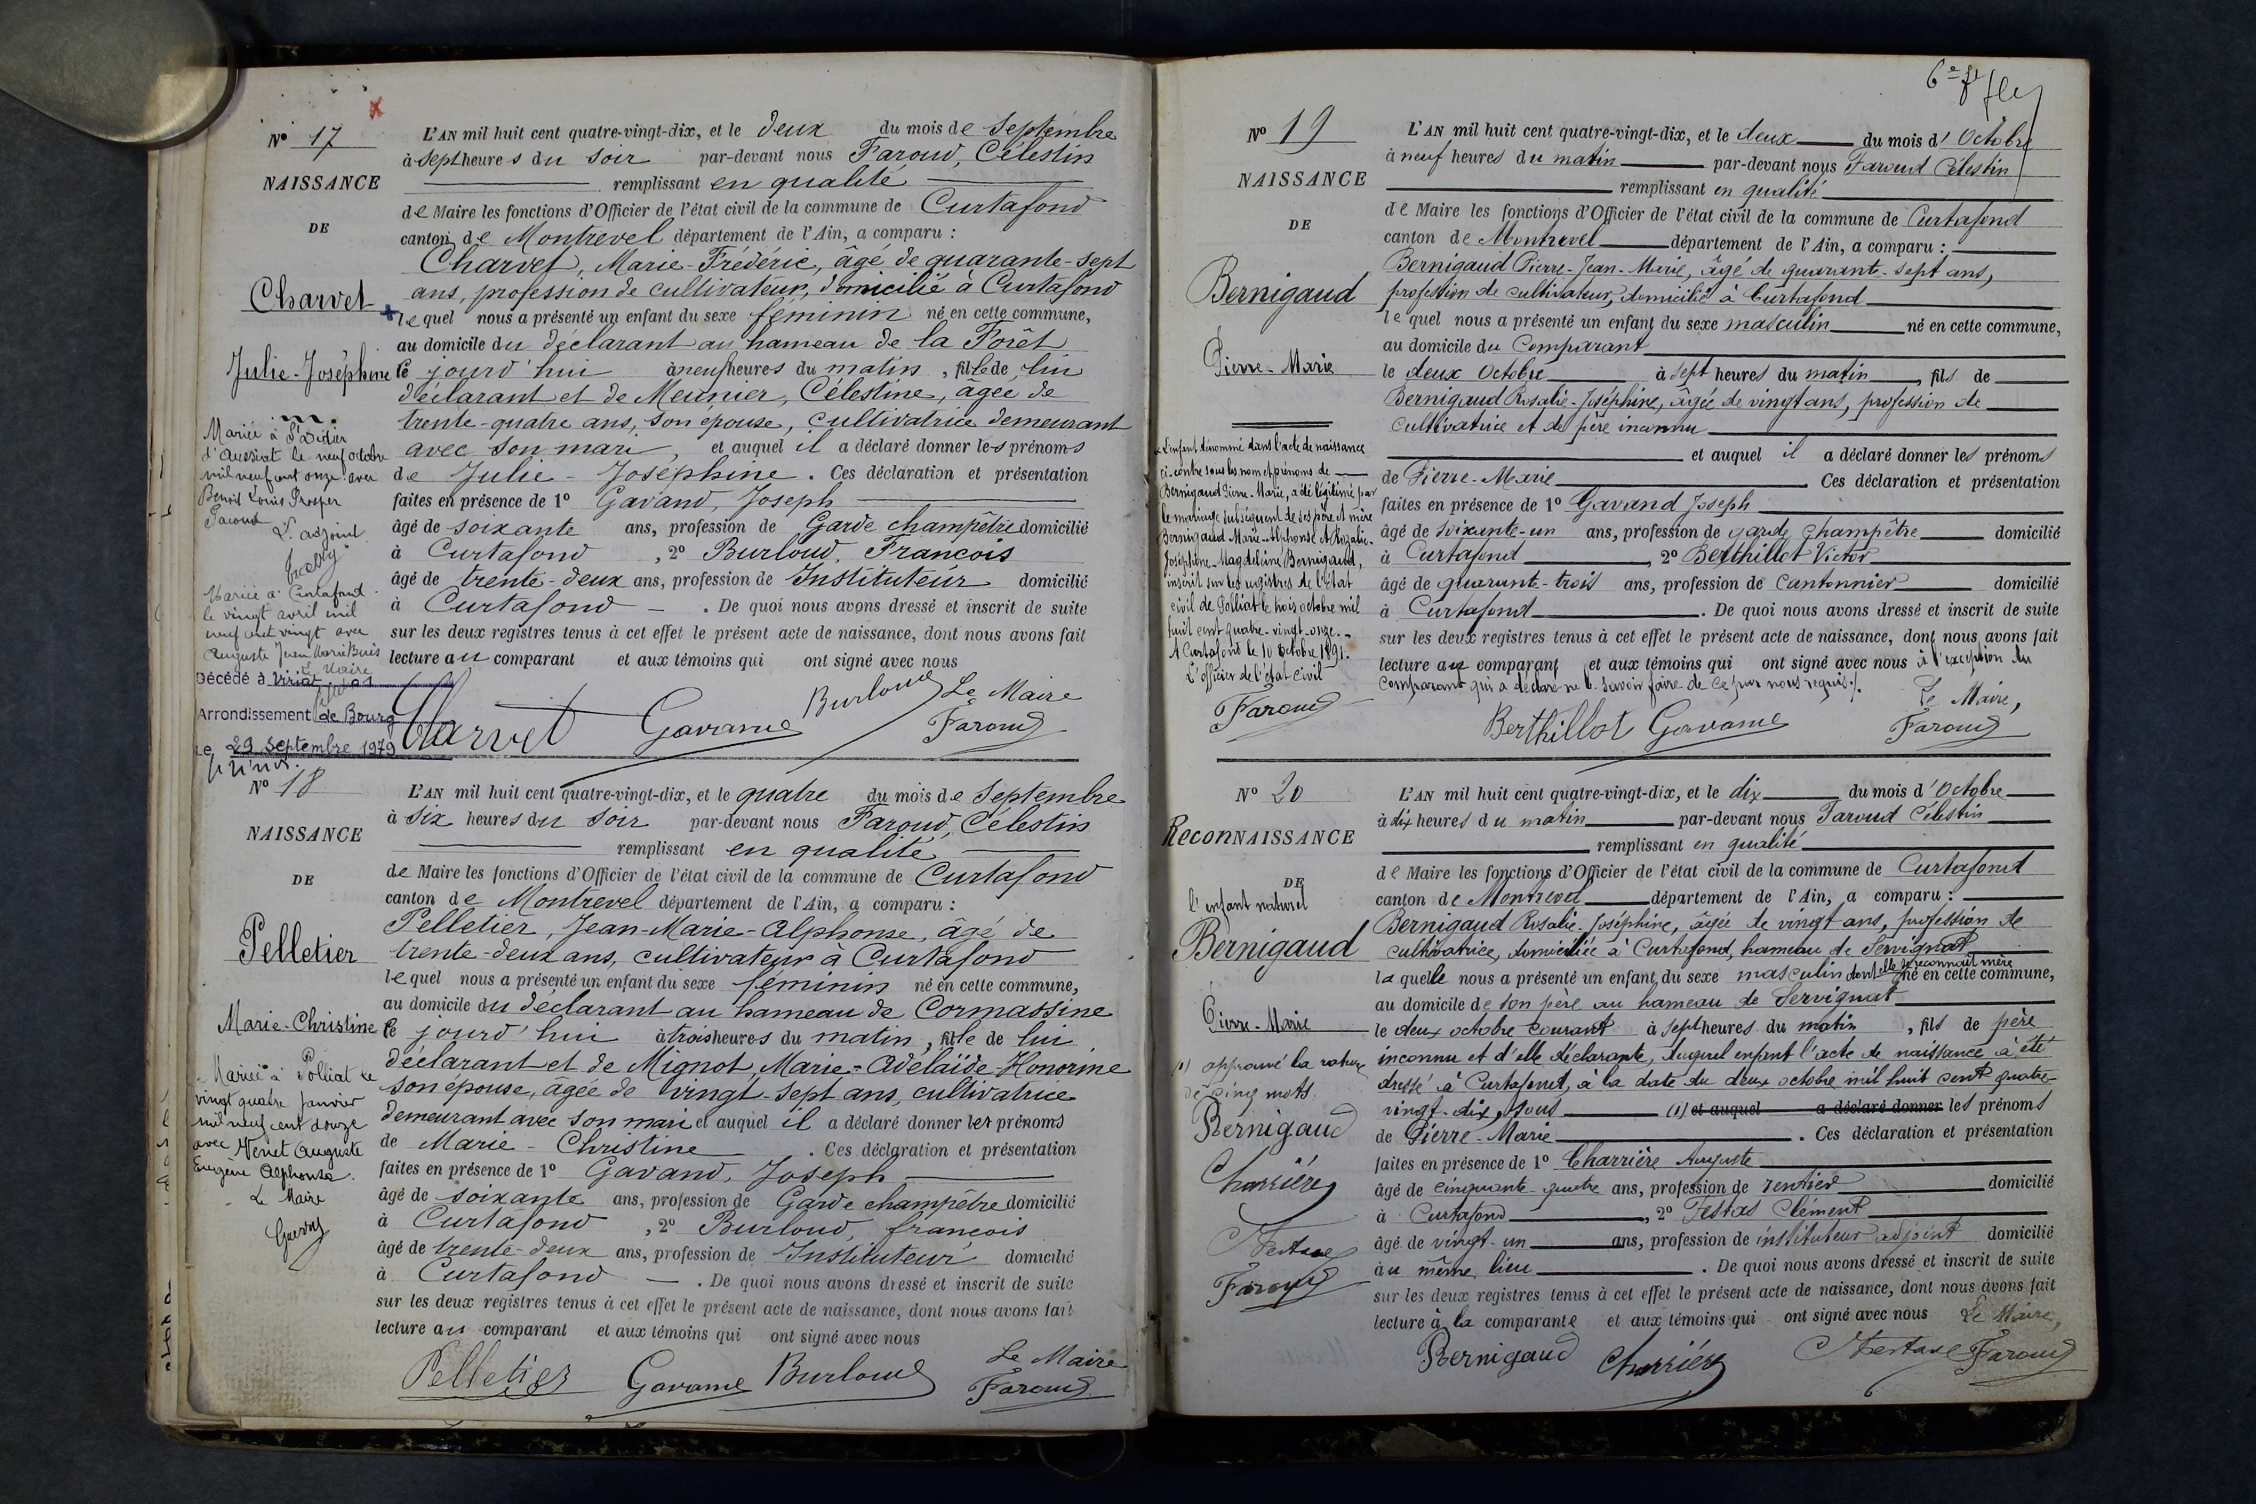 Nº 17
NAISSANCE
DE
Charvet
Julie-Joséphine
Mariée à St Didier
d'Aussiat le neuf octobre
mil neuf cent onze avec
Benoit Louis Prosper
Faroud
L'adjoint
Mariée à Curtafond
le vingt avril mil
neuf cent vingt avec
Auguste Jean Marie Buis
Le Maire
Décédé à Viriat
Arrondissement de Bourg
Le 29 Septembre 1979
L'AN mil huit cent quatre-vingt-dix, et le deux du mois de Septembre
à sept heures du soir par-devant nous Faroud, Célestin
remplissant en qualité
de Maire les fonctions d'Officier de l'état civil de la commune de Curtafond
canton de Montrevel département de l'Ain, a comparu :
Charvet, Marie-Frédéric, âgé de quarante-sept
ans, profession de cultivateur, domicilié à Curtafond
lequel nous a présenté un enfant du sexe féminin né en cette commune,
au domicile du déclarant au hameau de la Forêt
le jourd'hui à neuf heures du matin, fille de lui
déclarant et de Meunier, Célestine, âgée de
trente-quatre ans, son épouse, cultivatrice demeurant
avec son mari, et auquel il a déclaré donner les prénoms
de Julie-Joséphine. Ces déclaration et présentation
faites en présence de 1º Gavand, Joseph
âgé de soixante ans, profession de Garde champêtre domicilié
à Curtafond, 2º Burloud, François
âgé de trente-deux ans, profession de Instituteur domicilié
à Curtafond — . De quoi nous avons dressé et inscrit de suite
sur les deux registres tenus à cet effet le présent acte de naissance, dont nous avons fait
lecture au comparant et aux témoins qui ont signé avec nous
Charvet Gavand Burloud Le Maire
Faroud
Nº 18
NAISSANCE
DE
Pelletier
Marie-Christine
Mariée à Polliat le
vingt quatre janvier
mil neuf cent douze
avec Venet Auguste
Eugène Alphonse.
Le Maire
L'AN mil huit cent quatre-vingt-dix, et le quatre du mois de Septembre
à six heures du soir par-devant nous Faroud, Célestin
remplissant en qualité
de Maire les fonctions d'Officier de l'état civil de la commune de Curtafond
canton de Montrevel département de l'Ain, a comparu :
Pelletier, Jean-Marie-Alphonse, âgé de
trente-deux ans, cultivateur à Curtafond
lequel nous a présenté un enfant du sexe féminin né en cette commune,
au domicile du déclarant au hameau de Cormassine
le jourd'hui à trois heures du matin, fille de lui
déclarant et de Mignot, Marie-Adélaïde-Honorine
son épouse, âgée de vingt-sept ans, cultivatrice
demeurant avec son mari et auquel il a déclaré donner les prénoms
de Marie-Christine. Ces déclaration et présentation
faites en présence de 1º Gavand, Joseph
âgé de soixante ans, profession de Garde champêtre domicilié
à Curtafond, 2º Burloud, françois
âgé de trente-deux ans, profession de Instituteur domicilié
à Curtafond — . De quoi nous avons dressé et inscrit de suite
sur les deux registres tenus à cet effet le présent acte de naissance, dont nous avons fait
lecture au comparant et aux témoins qui ont signé avec nous
Le Maire
Pelletier Gavand Burloud Faroud
6e
Nº 19
NAISSANCE
DE
Bernigaud
Pierre-Marie
L'enfant dénommé dans l'acte de naissance
ci-contre sous les nom et prénoms de
Bernigaud Pierre-Marie, a été légitimé par
le mariage subséquent de ses père et mère
Bernigaud Marie-Alphonse et Rosalie-
Joséphine-Magdeleine Bernigaud,
inscrit sur les registres de l'état
civil de Polliat le trois octobre mil
huit cent quatre-vingt-onze.
A Curtafond le 10 octobre 1891.
L'officier de l'état civil
Faroud
L'AN mil huit cent quatre-vingt-dix, et le deux du mois d'Octobre
à neuf heures du matin par-devant nous Faroud Célestin
remplissant en qualité
de Maire les fonctions d'Officier de l'état civil de la commune de Curtafond
canton de Montrevel département de l'Ain, a comparu :
Bernigaud Pierre-Jean-Marie, âgé de quarante-sept ans,
profession de cultivateur, domicilié à Curtafond
lequel nous a présenté un enfant du sexe masculin né en cette commune,
au domicile du Comparant
le deux Octobre à sept heures du matin, fils de
Bernigaud Rosalie-Joséphine, âgée de vingt ans, profession de
cultivatrice et de père inconnu
et auquel il a déclaré donner les prénoms
de Pierre-Marie. Ces déclaration et présentation
faites en présence de 1º Gavand Joseph
âgé de soixante-un ans, profession de garde champêtre domicilié
à Curtafond, 2º Berthillot Victor
âgé de quarante-trois ans, profession de cantonnier domicilié
à Curtafond. De quoi nous avons dressé et inscrit de suite
sur les deux registres tenus à cet effet le présent acte de naissance, dont nous avons fait
lecture au comparant et aux témoins qui ont signé avec nous à l'exception du
comparant qui a déclaré ne le savoir faire de ce par nous requis.
Le Maire,
Berthillot Gavand Faroud
Nº 20
ReconNAISSANCE
DE
l'enfant naturel
Bernigaud
Pierre-Marie
(1) approuvé la rature
de cinq mots.
Bernigaud
Charrière
Faroud
L'AN mil huit cent quatre-vingt-dix, et le dix du mois d'Octobre
à dix heures du matin par-devant nous Faroud Célestin
remplissant en qualité
de Maire les fonctions d'Officier de l'état civil de la commune de Curtafond
canton de Montrevel département de l'Ain, a comparu :
Bernigaud Rosalie-Joséphine, âgée de vingt ans, profession de
cultivatrice, domiciliée à Curtafond, hameau de Servignat
laquelle nous a présenté un enfant du sexe masculin dont elle se reconnait mère né en cette commune,
au domicile de son père au hameau de Servignat
le deux octobre courant à sept heures du matin, fils de père
inconnu et d'elle déclarante, duquel enfant l'acte de naissance a été
dressé à Curtafond, à la date du deux octobre mil huit cent quatre-
vingt-dix, sous (1) et auquel a déclaré donner les prénoms
de Pierre-Marie. Ces déclaration et présentation
faites en présence de 1º Charrière Auguste
âgé de cinquante-quatre ans, profession de rentier domicilié
à Curtafond, 2º Testas Clément
âgé de vingt-un ans, profession de instituteur adjoint domicilié
au même lieu. De quoi nous avons dressé et inscrit de suite
sur les deux registres tenus à cet effet le présent acte de naissance, dont nous avons fait
lecture à la comparante et aux témoins qui ont signé avec nous Le Maire,
Bernigaud Charrière Faroud